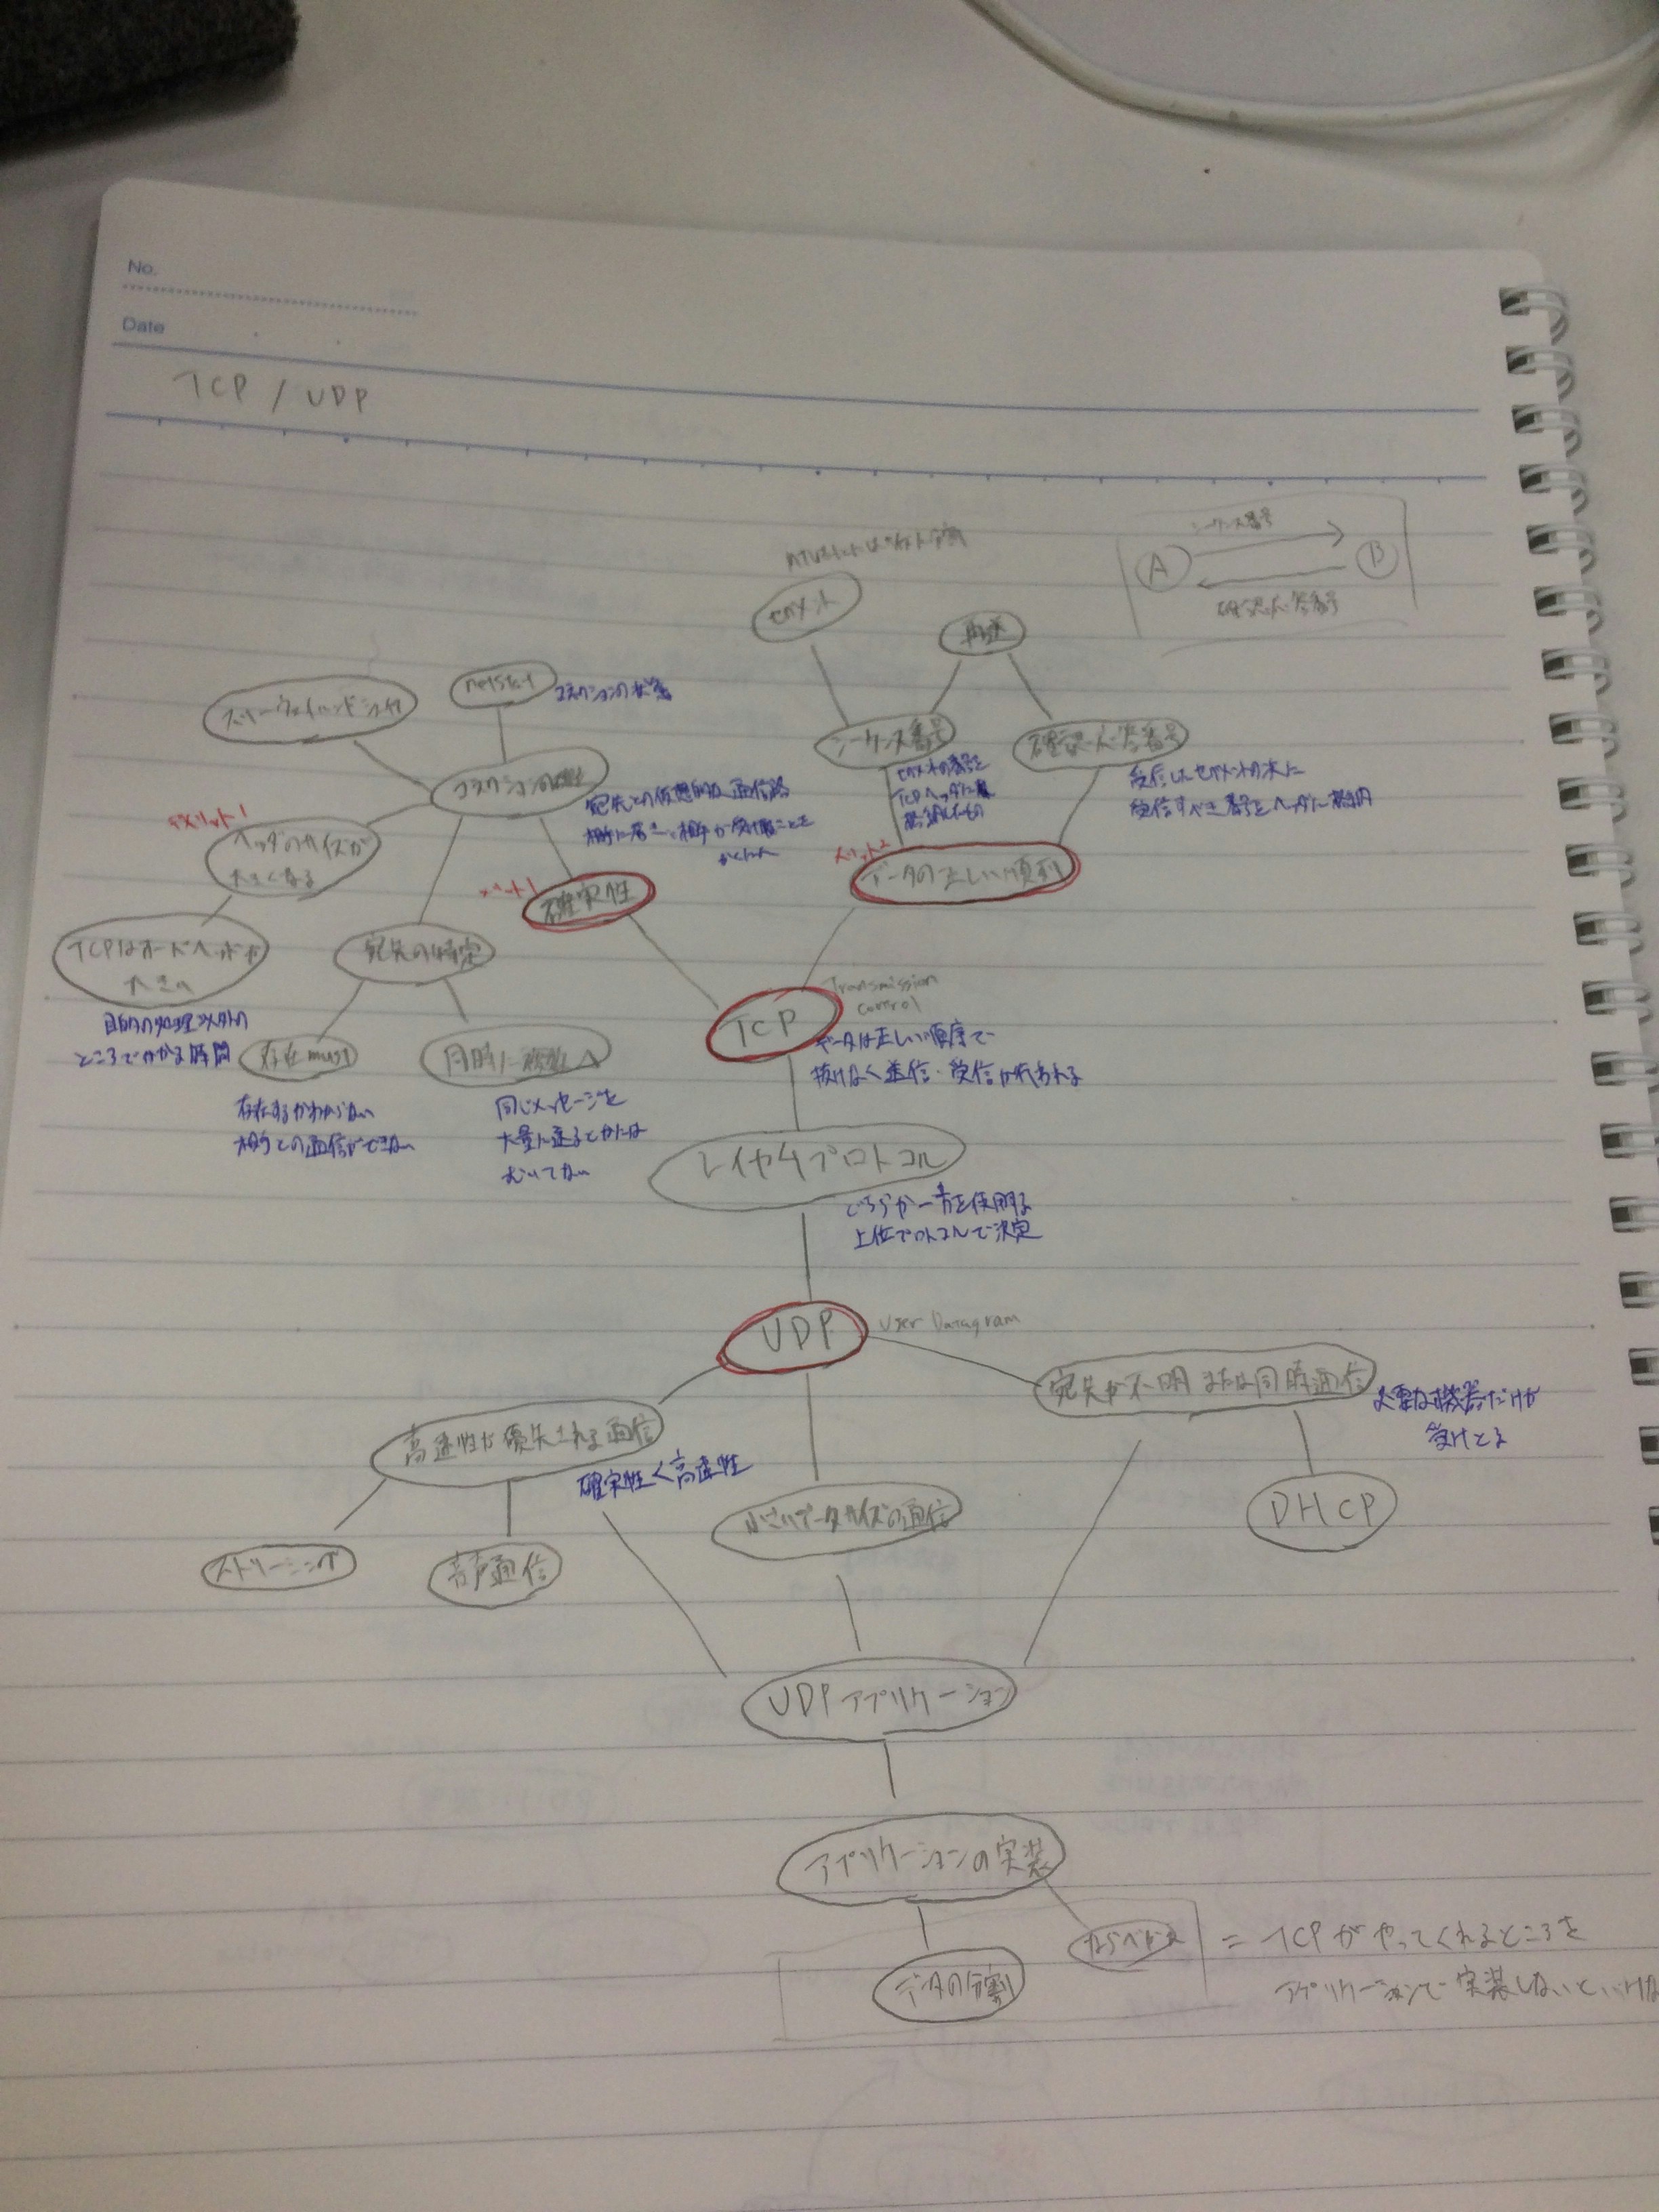 No.
Date
TCP / UDP
シーケンス番号
A
B
確認応答番号
セグメント
再送
スリーウェイハンドシェイク
netstat
コネクションの状態
シーケンス番号
セグメントの番号を
TCPヘッダに
格納したもの
確認応答番号
受信したセグメントの次に
受信すべき番号をヘッダに格納
コネクションの確立
宛先との仮想的な通信路
デメリット1
ヘッダのサイズが
大きくなる
メリット1
確実性
メリット2
データの正しい順列
TCPはオーバーヘッドが
大きい
目的の処理以外の
ところでかかる時間
宛先の特定
存在must
存在するかわからない
相手との通信ができない
同時に複数△
同じメッセージを
大量に送るとかには
むいてない
TCP
Transmission
Control
データは正しい順序で
抜けなく送信・受信が行われる
レイヤ4プロトコル
どちらか一方を使用する
上位プロトコルで決定
UDP
User Datagram
高速性が優先される通信
確実性<高速性
ストリーミング
音声通信
小さいデータサイズの通信
宛先が不明または同時通信
必要な機器だけが
受けとる
DHCP
UDPアプリケーション
アプリケーションの実装
データの分割
ならべかえ
= TCPがやってくれるところを
アプリケーションで実装しないといけな